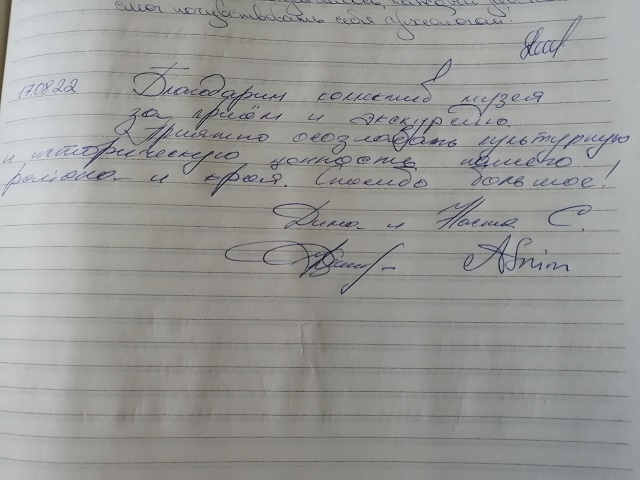 каждый
смог почувствовать себя археологом!
17.08.22 Благодарим коллектив музея
за приём и экскурсию.
Приятно осознавать культурную
и историческую ценность нашего
района и края. Спасибо большое!
Дима и Настя С.